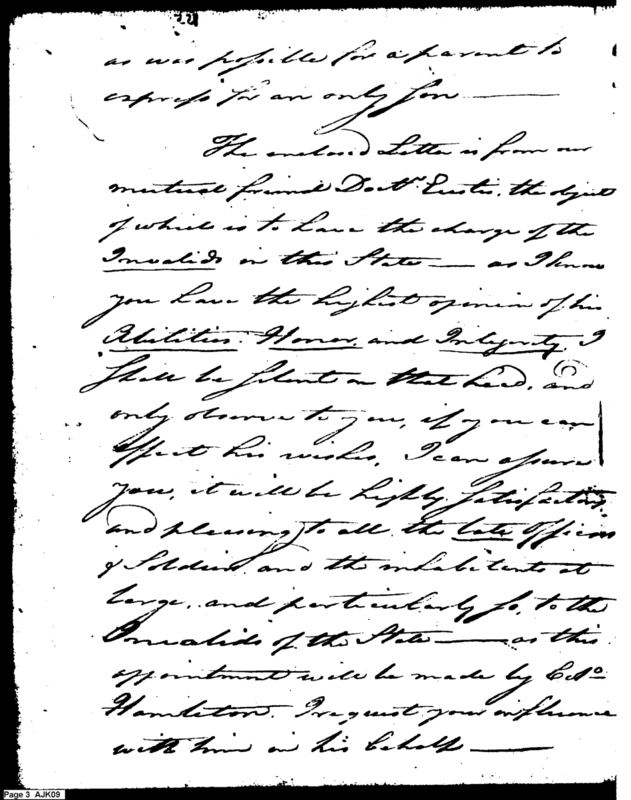 as was possible for a parent to
express for an only son —
The enclosed Letter is from our
mutual friend Doctr. Eustis, the object
of which is to have the charge of the
Invalids in this State — as I know
you have the highest opinion of his
Abilities. Honor, and Integrity, I
shall be silent on that head, and
only observe to you, if you can
effect his wishes, I can assure
you, it will be highly satisfactory
and pleasing to all the late Officers
& Soldiers and the inhabitants at
large, and particularly so, to the
Invalids of the State — as this
appointment will be made by Colo
Hamilton. I request your influence
with him in his behalf —
Page 3 AJK09